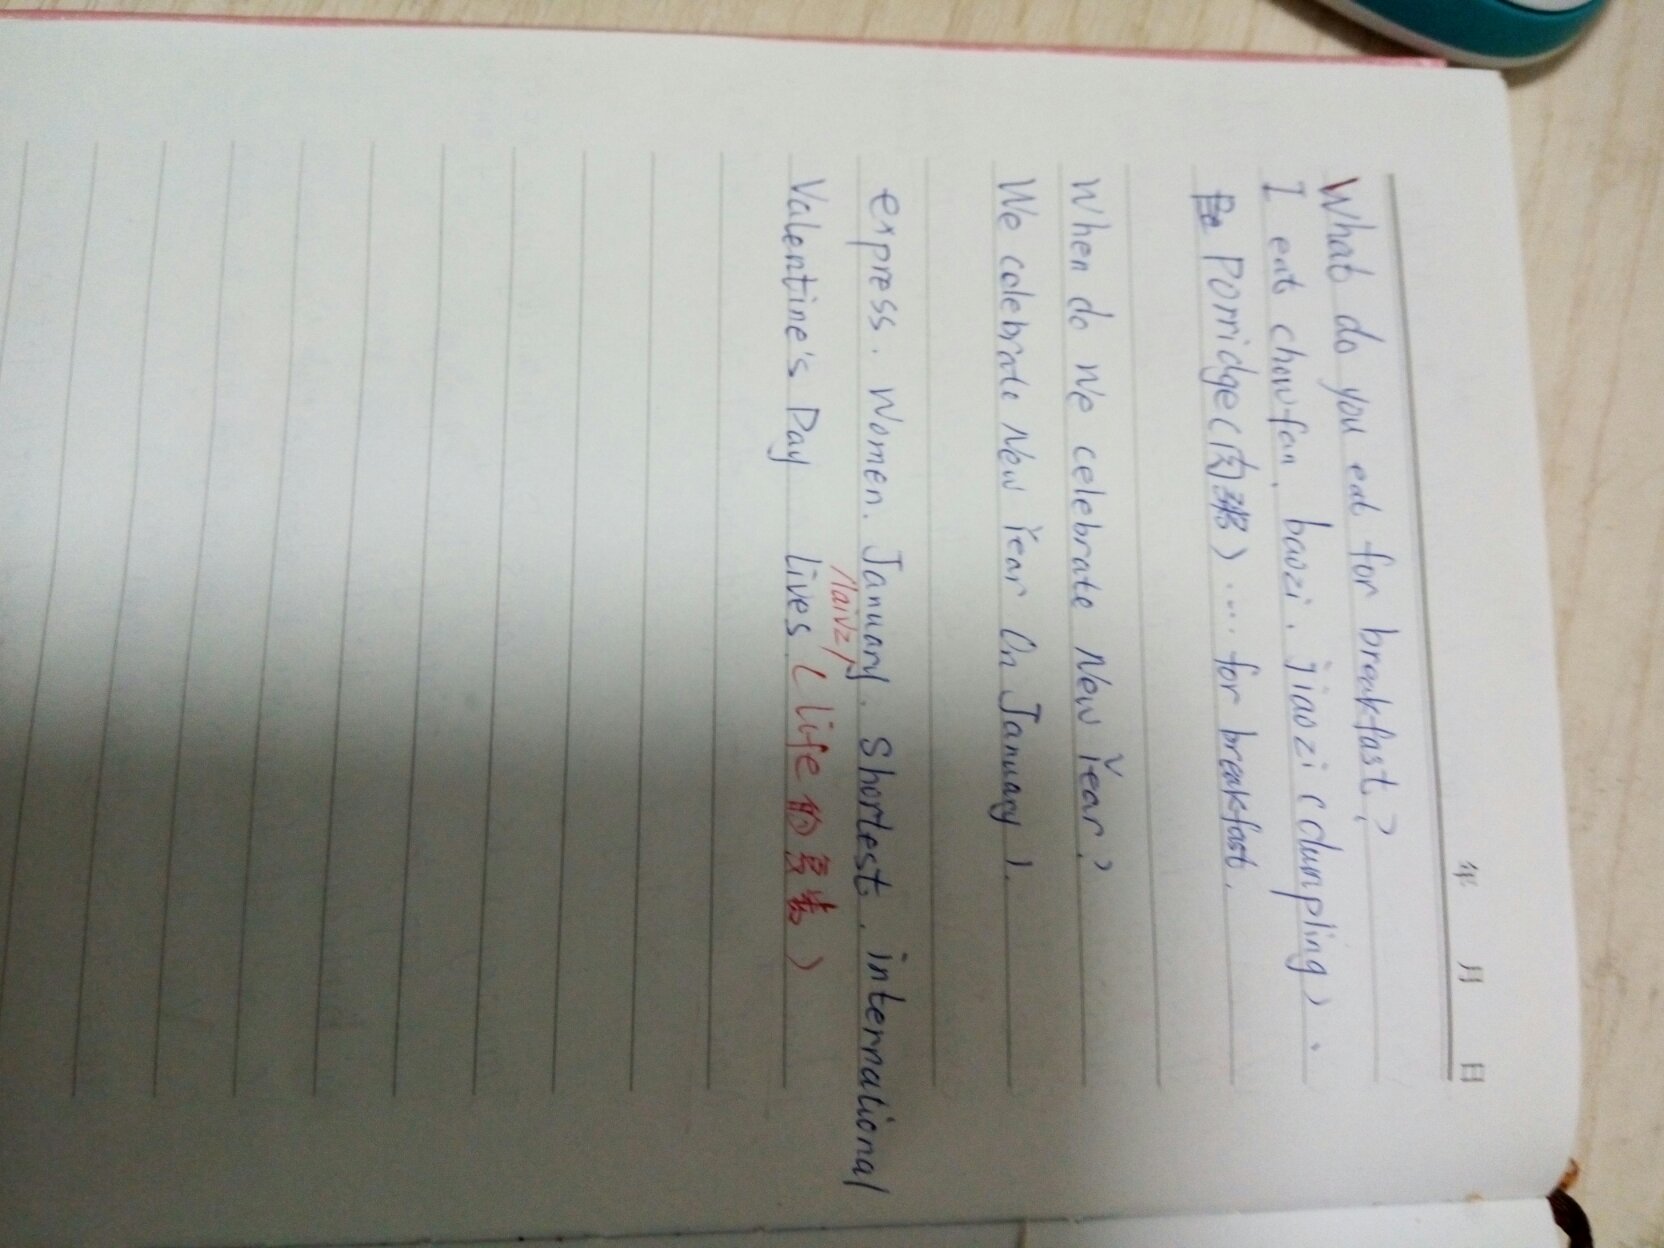 年 月 日
What do you eat for breakfast?
I eat chow-fan, baozi. jiaozi (dumpling).
Porridge (肉粥) .... for breakfast.
When do we celebrate New Year?
We celebrate New Year (In January).
express. Women. January. Shortest. international
/laivz/
Valentine's Day lives (life 的复数)